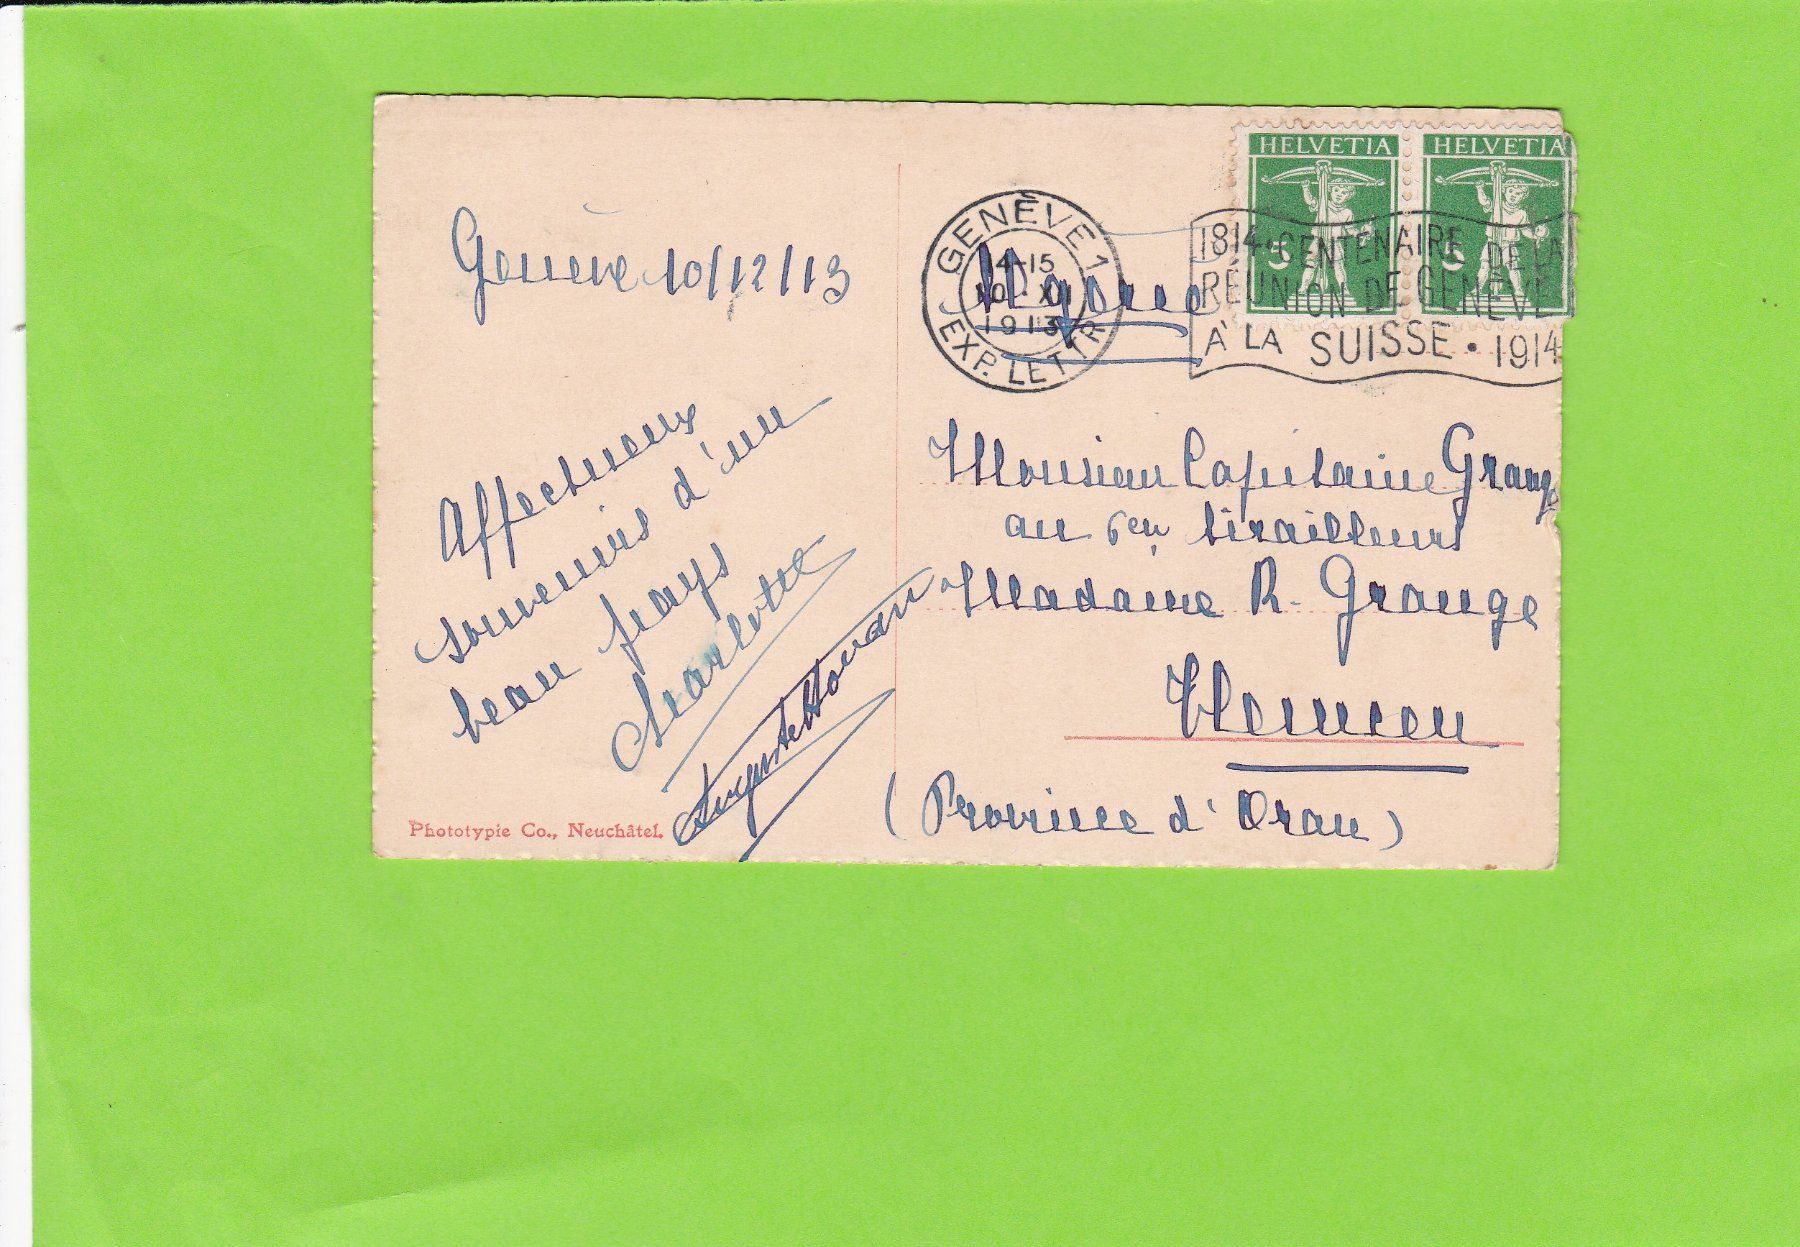 Genève 10/12/13
Affectueux
souvenirs d'un
beau pays
Charlotte
Phototypie Co., Neuchâtel.
HELVETIA HELVETIA
5 5
GENÈVE 1
14-15
10.XII
1913
EXP. LETTR
1814 · CENTENAIRE DE LA
RÉUNION DE GENÈVE
À LA SUISSE · 1914
Maroc
Monsieur Capitaine Grange
au 6en tirailleurs
Madame R. Grange
Tlemcen
(Province d'Oran)